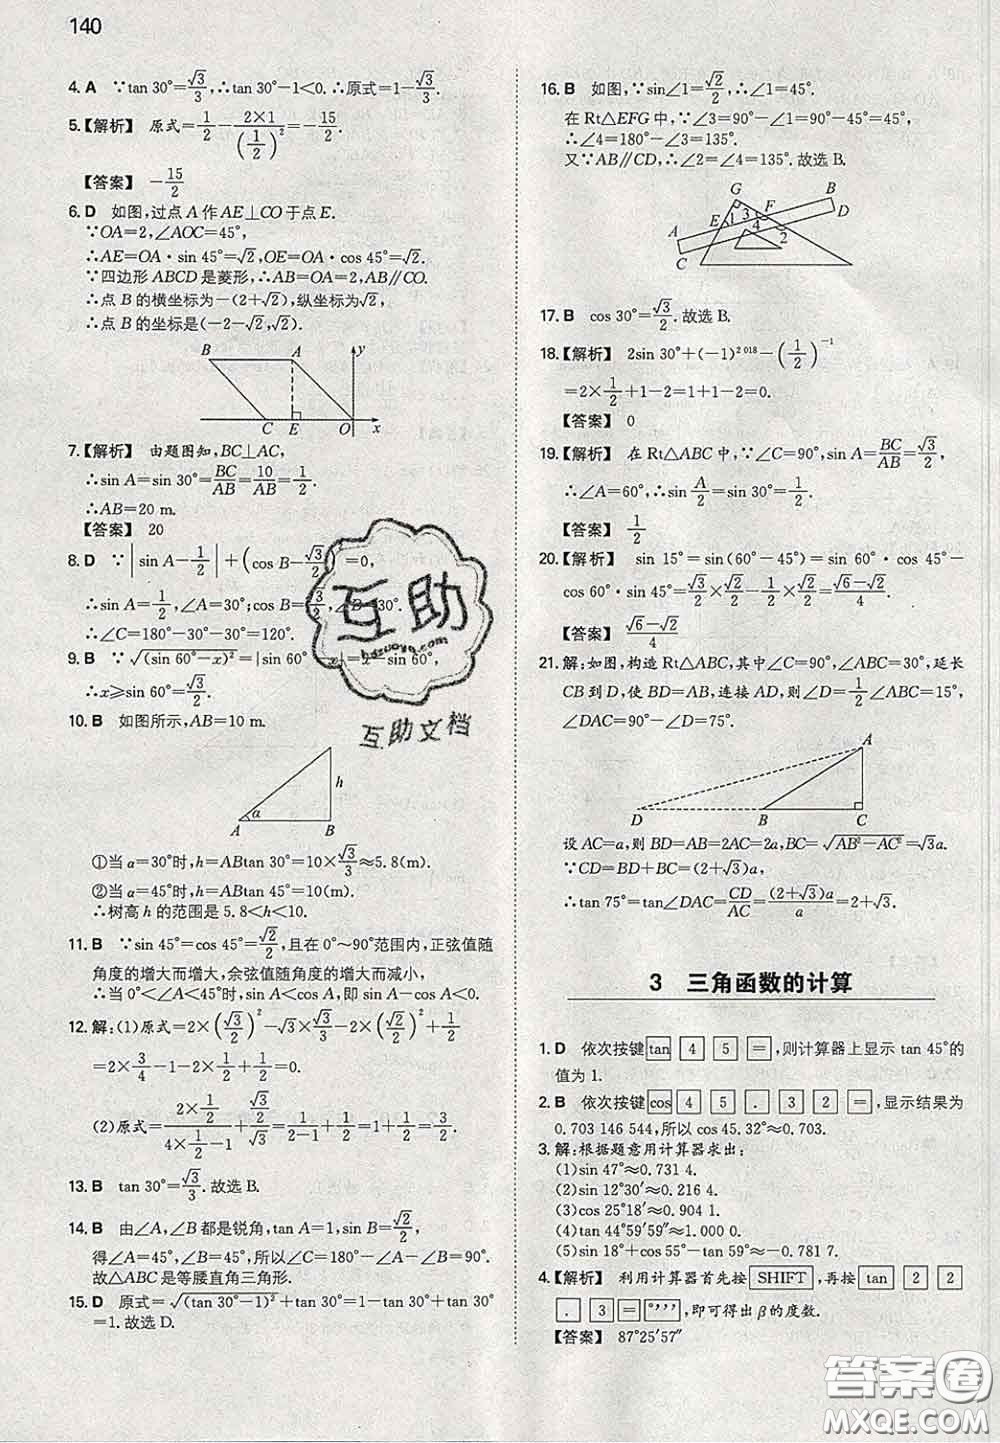 140
4. A ∵tan 30°=√3/3,∴tan 30°-1<0.∴原式=1-√3/3.
5.【解析】 原式=1/2-(2×1)/(1/2)²=-15/2.
【答案】 -15/2
6. D 如图,过点A作AE⊥CO于点E.
∵OA=2,∠AOC=45°,
∴AE=OA·sin 45°=√2,OE=OA·cos 45°=√2.
∵四边形ABCD是菱形,∴AB=OA=2,AB∥CO.
∴点B的横坐标为-(2+√2),纵坐标为√2.
∴点B的坐标是(-2-√2,√2).
B A y
C E O x
7.【解析】 由题图知,BC⊥AC,
∴sin A=sin 30°=BC/AB=10/AB=1/2.
∴AB=20 m.
【答案】 20
8. D ∵|sin A-1/2|+(cos B-√3/2)=0,
∴sin A=1/2,∠A=30°;cos B=√3/2,∠B=30°.
∴∠C=180°-30°-30°=120°.
9. B ∵√(sin 60°-x)²=|sin 60° |= -sin 60°,
∴x≥sin 60°=√3/2.
10. B 如图所示,AB=10 m.
h
α
A B
①当α=30°时,h=ABtan 30°=10×√3/3≈5.8(m).
②当α=45°时,h=ABtan 45°=10(m).
∴树高h的范围是5.8<h<10.
11. B ∵sin 45°=cos 45°=√2/2,且在0°~90°范围内,正弦值随
角度的增大而增大,余弦值随角度的增大而减小,
∴当0°<∠A<45°时,sin A<cos A,即sin A-cos A<0.
12. 解:(1)原式=2×(√3/2)²-√3×√3/3-2×(√2/2)²+1/2
=2×3/4-1-2×1/2+1/2=0.
(2)原式=(2×1/2)/(4×1/2-1)+(√3/2)/√3=1/(2-1)+1/2=1+1/2=3/2.
13. B tan 30°=√3/3.故选B.
14. B 由∠A,∠B都是锐角,tan A=1,sin B=√2/2,
得∠A=45°,∠B=45°,所以∠C=180°-∠A-∠B=90°.
故△ABC是等腰直角三角形.
15. D 原式=√(tan 30°-1)²+tan 30°=1-tan 30°+tan 30°
=1.故选D.
16. B 如图,∵sin∠1=√2/2,∴∠1=45°.
在Rt△EFG中,∵∠3=90°-∠1=90°-45°=45°,
∴∠4=180°-∠3=135°.
又∵AB∥CD,∴∠2=∠4=135°.故选B.
G B
E 1 3 F D
A 4 2
C
17. B cos 30°=√3/2.故选B.
18.【解析】 2sin 30°+(-1)²⁰¹⁸-(1/2)⁻¹
=2×1/2+1-2=1+1-2=0.
【答案】 0
19.【解析】 在Rt△ABC中,∵∠C=90°,sin A=BC/AB=√3/2,
∴∠A=60°,∴sin A/2=sin 30°=1/2.
【答案】 1/2
20.【解析】 sin 15°=sin(60°-45°)=sin 60°·cos 45°-
cos 60°·sin 45°=√3/2×√2/2-1/2×√2/2=(√6-√2)/4.
【答案】 (√6-√2)/4
21. 解:如图,构造Rt△ABC,其中∠C=90°,∠ABC=30°,延长
CB到D,使BD=AB,连接AD,则∠D=1/2∠ABC=15°,
∠DAC=90°-∠D=75°.
A
D B C
设AC=a,则BD=AB=2AC=2a,BC=√AB²-AC²=√3a.
∵CD=BD+BC=(2+√3)a,
∴tan 75°=tan∠DAC=CD/AC=(2+√3)a/a=2+√3.
3 三角函数的计算
1. D 依次按键 tan 4 5 =,则计算器上显示tan 45°的
值为1.
2. B 依次按键 cos 4 5 . 3 2 =,显示结果为
0.703 146 544,所以cos 45.32°≈0.703.
3. 解:根据题意用计算器求出:
(1)sin 47°≈0.731 4.
(2)sin 12°30′≈0.216 4.
(3)cos 25°18′≈0.904 1.
(4)tan 44°59′59″≈1.000 0.
(5)sin 18°+cos 55°-tan 59°≈-0.781 7.
4.【解析】 利用计算器首先按 SHIFT,再按 tan 2 2
. 3 = °′″,即可得出β的度数.
【答案】 87°25′57″
互助
hdzuoye.com
互助文档
答案圈
MXQE.COM